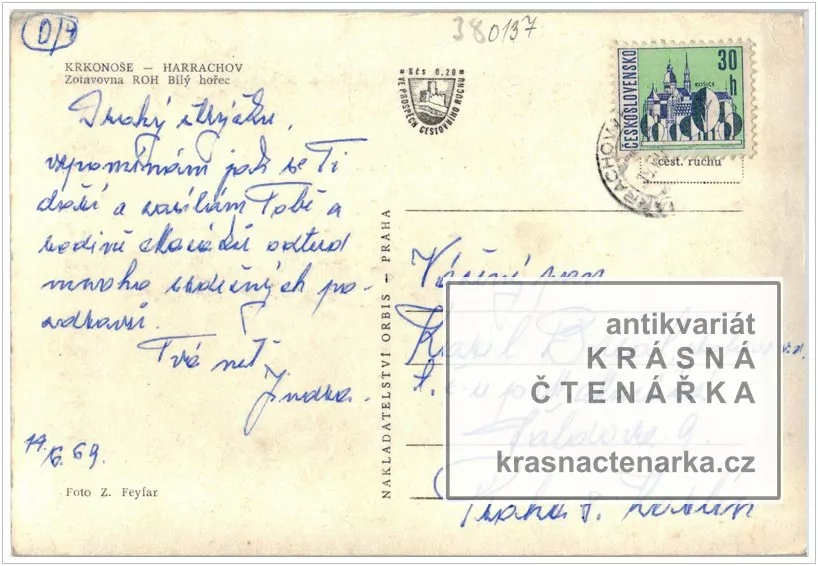 D/4
38 0137
KRKONOŠE — HARRACHOV
Zotavovna ROH Bílý hořec
Kčs 0,20
VE PROSPĚCH CESTOVNÍHO RUCHU
ČESKOSLOVENSKO
30 h
KOŠICE
HARRACHOV
cest. ruchu
Drahý strýčku,
vzpomínám jak se Ti
daří a zasílám Tobě a
rodině odtud
mnoho srdečných po-
zdravů.
Tvá neť
Jindra.
14.6.69.
Foto Z. Feyfar
NAKLADATELSTVÍ ORBIS — PRAHA
Vážený pan
Karel
9.
Praha 8. Karlín
antikvariát
KRÁSNÁ
ČTENÁŘKA
krasnactenarka.cz